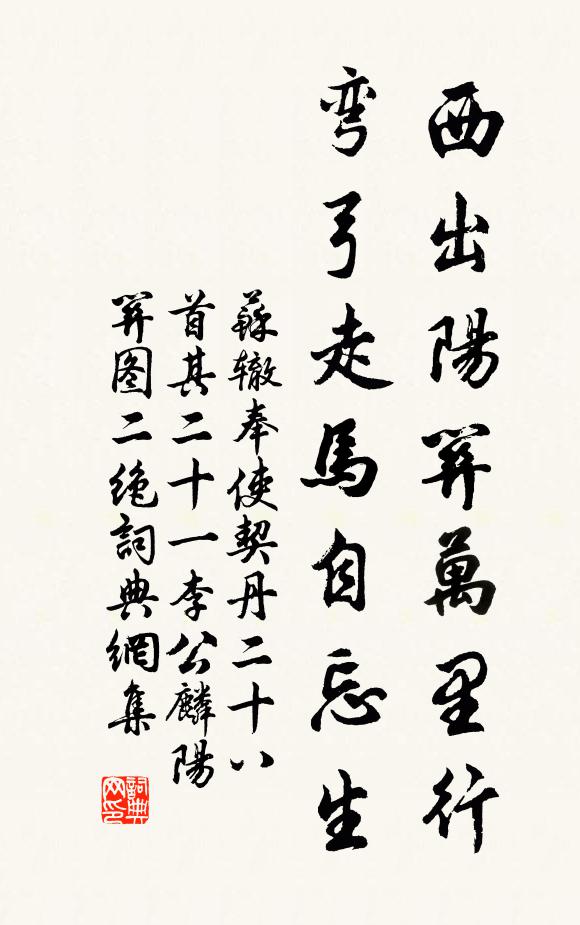 西出陽関萬里行
弯弓走馬自忘生
蘇辙奉使契丹二十八
首其二十一李公麟陽
関图二绝詞典網集
詞典网印